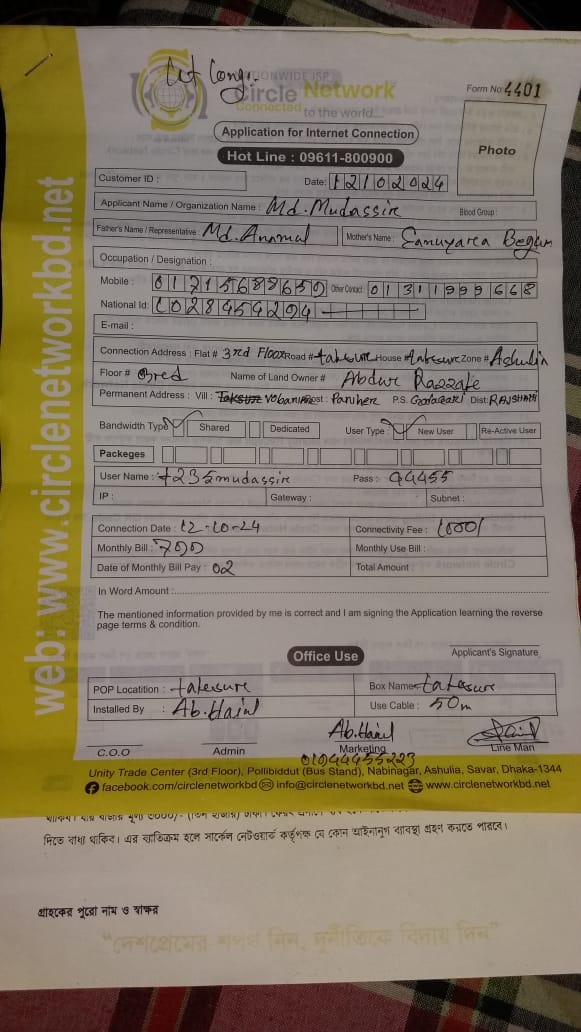 NATIONWIDE ISP
Circle Network
Connected to the world...
Form No: 4401
Application for Internet Connection
Hot Line : 09611-800900
Photo
Customer ID :
Date: 12102024
Applicant Name / Organization Name : Md. Mudassir
Blood Group:
Father's Name / Representative : Md. Anamul Mother's Name :
Occupation / Designation :
Mobile : Other Contact : 01311999668
National Id:
E-mail :
Connection Address : Flat # 3rd Floor Road # House # Zone # Ashulia
Floor # 3red Name of Land Owner # Abdur Razzak
Permanent Address : Vill : Post : P.S. Dist:
Bandwidth Type Shared Dedicated User Type : New User Re-Active User
Packeges
User Name : mudassir Pass : 94455
IP : Gateway : Subnet :
Connection Date : 12-10-24 Connectivity Fee : 1000/
Monthly Bill : 700 Monthly Use Bill :
Date of Monthly Bill Pay : 02 Total Amount :
In Word Amount :
The mentioned information provided by me is correct and I am signing the Application learning the reverse
page terms & condition.
Office Use
Applicant's Signature
POP Locatition : Box Name
Installed By : Use Cable : 50m
C.O.O Admin Marketing Line Man
Unity Trade Center (3rd Floor), Pollibiddut (Bus Stand), Nabinagar, Ashulia, Savar, Dhaka-1344
facebook.com/circlenetworkbd info@circlenetworkbd.net www.circlenetworkbd.net
web: www.circlenetworkbd.net
দিতে বাধ্য থাকিব। এর ব্যতিক্রম হলে সার্কেল নেটওয়ার্ক কর্তৃপক্ষ যে কোন আইনানুগ ব্যাবস্থা গ্রহণ করতে পারবে।
গ্রাহকের পুরো নাম ও স্বাক্ষর
“দেশপ্রেমের শপথ নিন, দুর্নীতিকে বিদায় দিন”